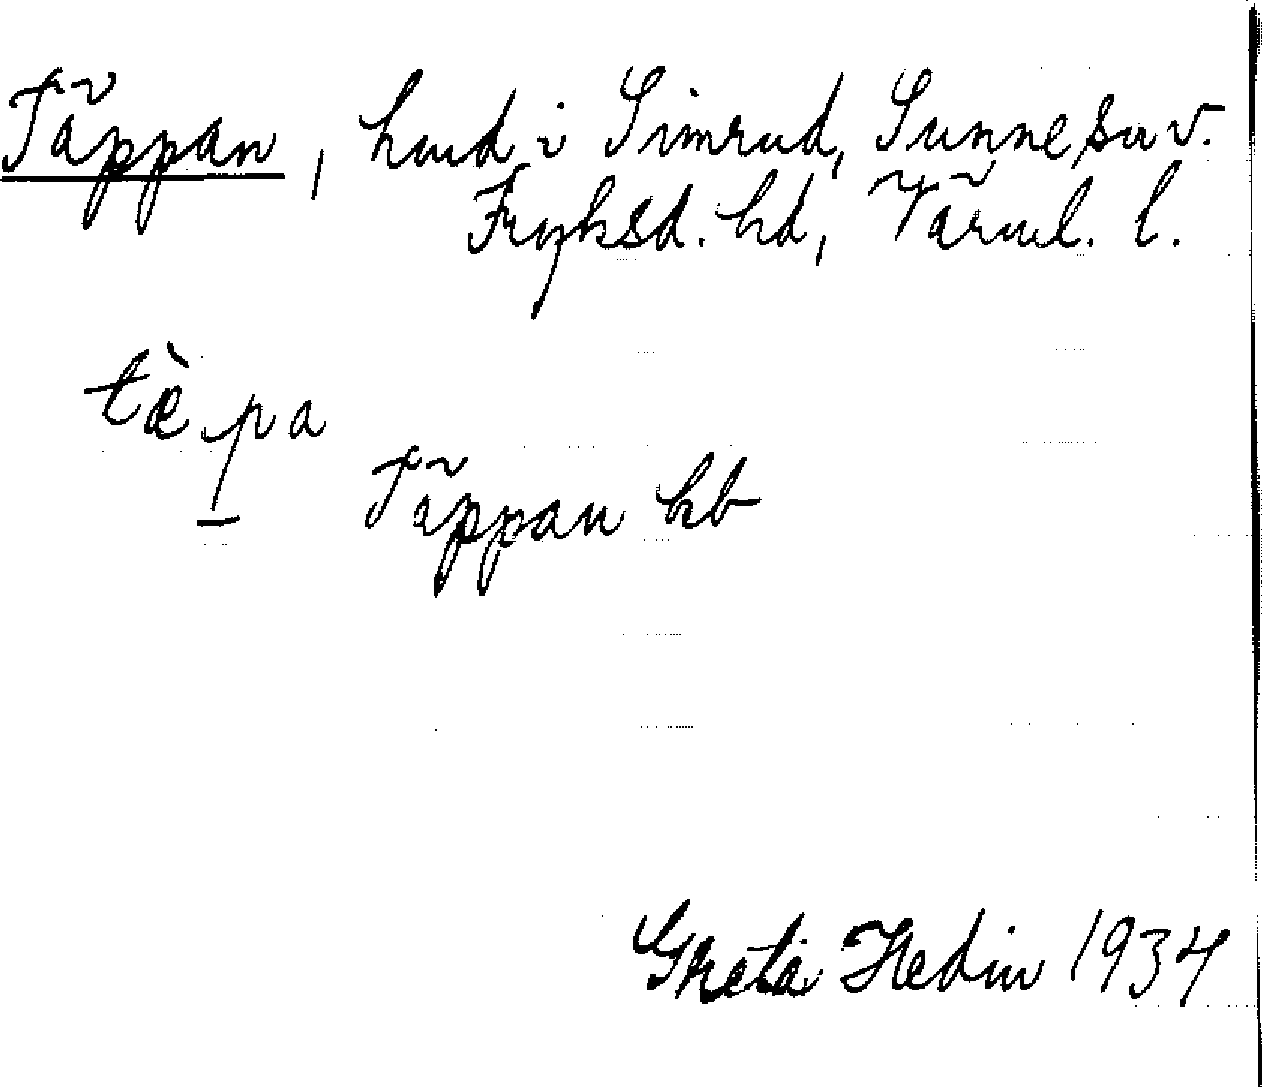 Täppan, hmd i Simrud, Sunne sn v.
Fryksd. hd, Värml. l.
tæ̀pa
Täppan kb
Greta Hedin 1934